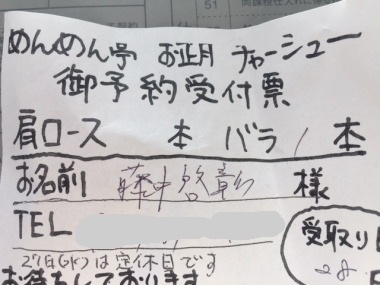 51
めんめん亭 お正月 チャーシュー
御予約受付票
肩ロース 本 バラ 1 本
お名前 藤中啓彰 様
TEL
受取り
27日(水)は定休日です
28
お待ちしております